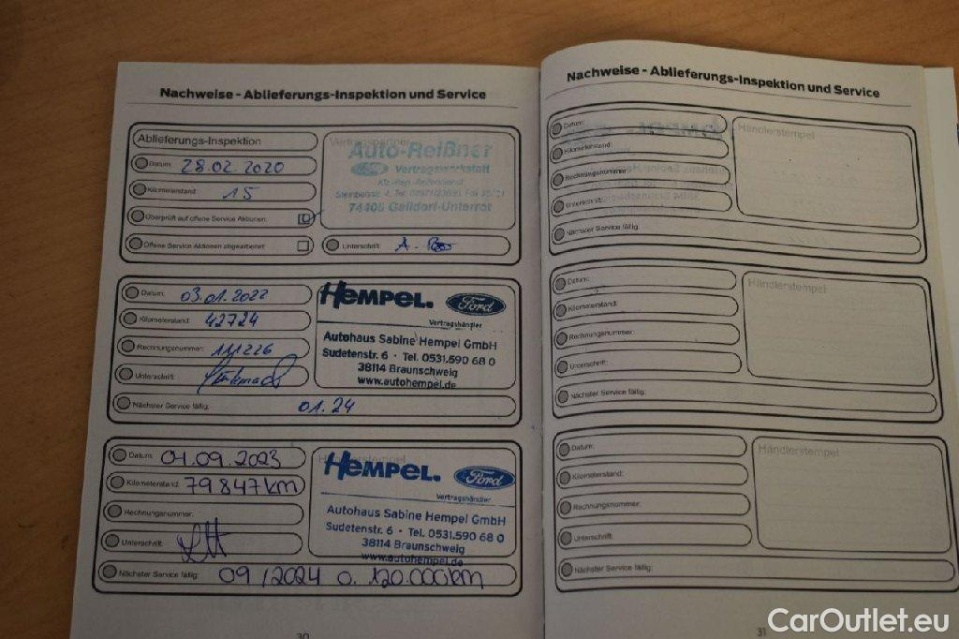 Nachweise - Ablieferungs-Inspektion und Service
Ablieferungs-Inspektion
Datum: 28.02.2020
Kilometerstand: 15
Überprüft auf offene Service Aktionen:
Offene Service Aktionen abgearbeitet:
Auto-Reißner
Ford Vertragswerkstatt
74405 Gaildorf-Unterrot
Unterschrift:
Datum: 03.01.2022
Kilometerstand: 42724
Rechnungsnummer: 111226
Unterschrift:
Nächster Service fällig: 01.24
HEMPEL. Ford
Vertragshändler
Autohaus Sabine Hempel GmbH
Sudetenstr. 6 · Tel. 0531.590 68 0
38114 Braunschweig
www.autohempel.de
Datum: 04.09.2023
Kilometerstand: 79847km
Rechnungsnummer:
Unterschrift:
Nächster Service fällig: 09/2024 o. 120.000km
HEMPEL. Ford
Vertragshändler
Autohaus Sabine Hempel GmbH
Sudetenstr. 6 · Tel. 0531.590 68 0
38114 Braunschweig
www.autohempel.de
30
Nachweise - Ablieferungs-Inspektion und Service
Datum:
Kilometerstand:
Rechnungsnummer:
Unterschrift:
Nächster Service fällig:
Händlerstempel
Datum:
Kilometerstand:
Rechnungsnummer:
Unterschrift:
Nächster Service fällig:
Händlerstempel
Datum:
Kilometerstand:
Rechnungsnummer:
Unterschrift:
Nächster Service fällig:
Händlerstempel
31
CarOutlet.eu